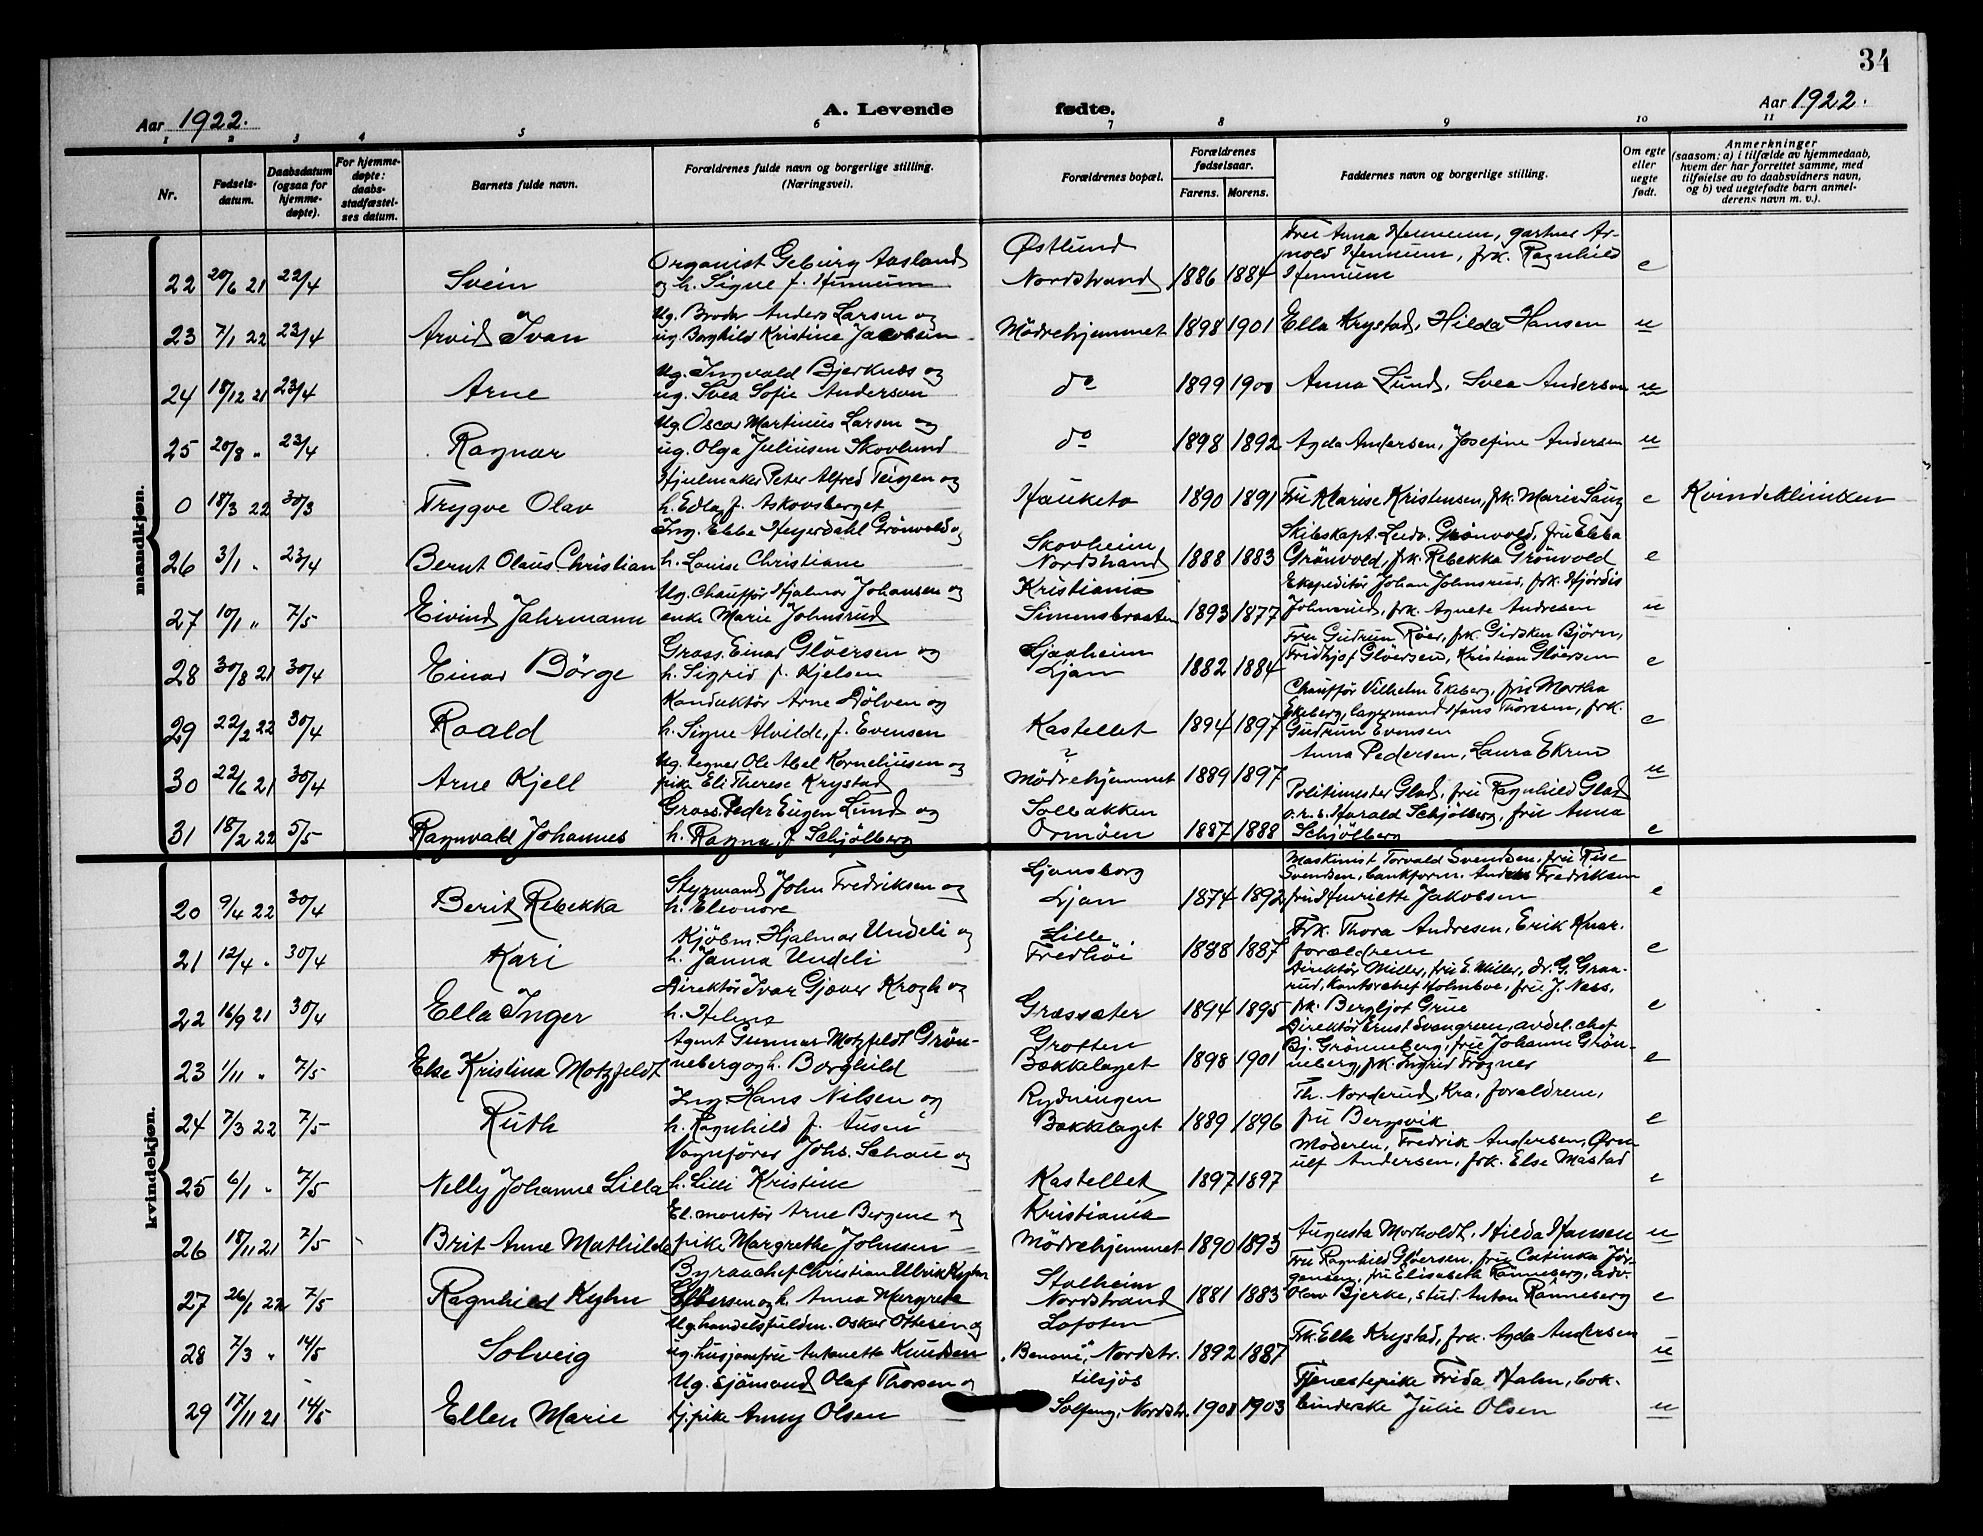 34
Aar 1922.
A. Levende fødte.
Aar 1922.
1 2 3 4 5 6 7 8 9 10 11
Nr.
Fødsels-datum.
Daabsdatum (ogsaa for hjemme-døpte).
For hjemme-døpte: daabs-stadfæstel-ses datum.
Barnets fulde navn.
Forældrenes fulde navn og borgerlige stilling. (Næringsvei).
Forældrenes bopæl.
Forældrenes fødselsaar.
Farens. Morens.
Faddernes navn og borgerlige stilling.
Om egte eller uegte født.
Anmerkninger (saasom: a) i tilfælde av hjemmedaab, hvem der har forrettet samme, med tilføielse av to daabsvidners navn, og b) ved uegtefødte barn anmel-derens navn m. v.).
mandkjøn.
22 20/6 21 22/4 Svein Organist Geburg Aasland og h. Signe f. Hennum Østlund Nordstrand 1886 1884 Fru Anna Hennum, gartner Arnold Hennum, frk. Ragnhild Hennum e
23 7/1 22 23/4 Arvid Ivan Ug. Broder Anders Larsen og ug. Borghild Kristine Jacobsen Mödrehjemmet 1898 1901 Ella Krystad, Hilda Hansen u
24 18/12 21 23/4 Arne Ug. Ingvald Bjerknes og ug. Svea Sofie Anderson do 1899 1900 Anna Lund, Svea Anderson u
25 20/8 " 23/4 Ragnar Ug. Oscar Martinius Larsen og ug. Olga Juliusen Skovlund do 1898 1892 Agda Andersen, Josefine Andersen u
0 18/3 22 30/3 Trygve Olav Hjulmaker Peter Alfred Teigen og h. Edla f. Askovsberget Hauketo 1890 1891 Fru Marise Kristensen, frk. Marie e Kvindekliniken
26 3/1 " 23/4 Bernt Olaus Christian Ing. Ebbe Heyerdahl Grönvold og h. Louise Christiane Skovheim Nordstrand 1888 1883 Skibskapt. Ludv. Grönvold, fru Ebba Grönvold, frk. Rebekka Grönvold e
27 10/1 " 7/5 Eivind Jahrmann Ug. Chauffør Hjalmar Johansen og enke Marie Johnsrud Kristiania Simensbraaten 1893 1877 Ekspeditör Johan Johnsrud, frk. Hjördis Johnsrud, frk. Agnete Andresen u
28 30/8 21 30/4 Einar Börge Gross. Einar Glöersen og h. Sigrid f. Kjelsen Ljanheim Ljan 1882 1884 Fru Gudrun Röer, frk. Gidsken Björn, Fridtjof Glöersen, Kristian Glöersen e
29 22/2 22 30/4 Roald Konduktör Arne Dölven og h. Signe Alvilde, f. Evensen Kastellet 1894 1897 Chauffør Vilhelm Ekeberg, fru Martha Ekeberg, lagermand Hans Thoresen, frk. Gudrun Evensen e
30 22/6 21 30/4 Arne Kjell Ug. tegner Ole Abel Korneliusen og pike Eli Therese Krystad ? Mödrehjemmet 1889 1897 Anna Pedersen, Laura Ekren u
31 18/2 22 5/5 Ragnvald Johannes Gross. Peder Eugen Lund og h. Ragna, f. Schjölberg Solbakken Ormöen 1887 1888 Politimester Glad, fru Ragnhild Glad o.r.s. Harald Schjölberg, fru Anna Schjölberg e
kvindekjøn.
20 9/4 22 30/4 Berit Rebekka Styrmand John Fredriksen og h. Eleonore Ljansborg Ljan 1874 1892 Maskinist Torvald Svendsen, fru Rise Svendsen, bankform. Anders Fredriksen fru Henriette Jakobsen e
21 12/4 " 30/4 Kari Kjöbm. Hjalmar Undeli og h. Janna Undeli Lille Fredhöi 1888 1887 Frk. Thora Andresen, Erik Knar. forældrene e
22 16/9 21 30/4 Ella Inger Direktör Ivar Gjæver Krogh og h. Helma Græssæter 1894 1895 Direktör Miller, fru E. Miller, dr. G. Graarud, kontorchef Holmboe, fru J. Ness, frk. Bergljot Grue e
23 1/11 " 7/5 Else Kristina Motzfeldt Agent Gunnar Motzfeldt Grönneberg og h. Borghild Grotten Bækkelaget 1898 1901 Direktör Ernst Svangreen, avdel. chef Bj. Grönneberg, fru Johanne Grönneberg, frk. Ingrid Frogner e
24 7/3 22 7/5 Ruth Ing. Hans Nilsen og h. Ragnhild f. Ausen Rydningen Bækkelaget 1889 1896 Th. Norderud, Kra, forældrene, fru Bergsvik e
25 6/1 " 7/5 Nelly Johanne Lilla Vognförer Johs. Schou og h. Lilli Kristine Kastellet 1897 1897 Moderen, Fredrik Andersen, Örnulf Andersen, frk. Else Mastad e
26 18/11 21 7/5 Brit Anne Mathilde El. montör Arne Bergene og pike Margrethe Johnsen Kristiania Mödrehjemmet 1890 1893 Augusta Morholdt, Hilda Hansen u
27 26/1 22 7/5 Ragnhild Kyhn Byraachef Christian Ulrik Kyhn Glöersen og h. Anna Margrete Stalheim Nordstrand 1881 1883 Fru Ragnhild Glöersen, fru Catinka Jörgensen, fru Elisabeth Rönneberg, adv. Olav Bjerke, stud. Anton Rönneberg e
28 7/3 " 14/5 Solveig Ug. handelsfuldm. Oskar Ottesen og ug. husjomfru Antonette Knudsen Lofoten "Benoni", Nordstr. 1892 1887 Frk. Ella Krystad, frk. Agda Andersen u
29 17/11 21 14/5 Ellen Marie Ug. sjömand Olaf Thorsen og tj. pike Anny Olsen tilsjös Solfeng, Nordstr. 1901 1903 Tjenestepike Frida Halm, bokbinderske Julie Olsen u